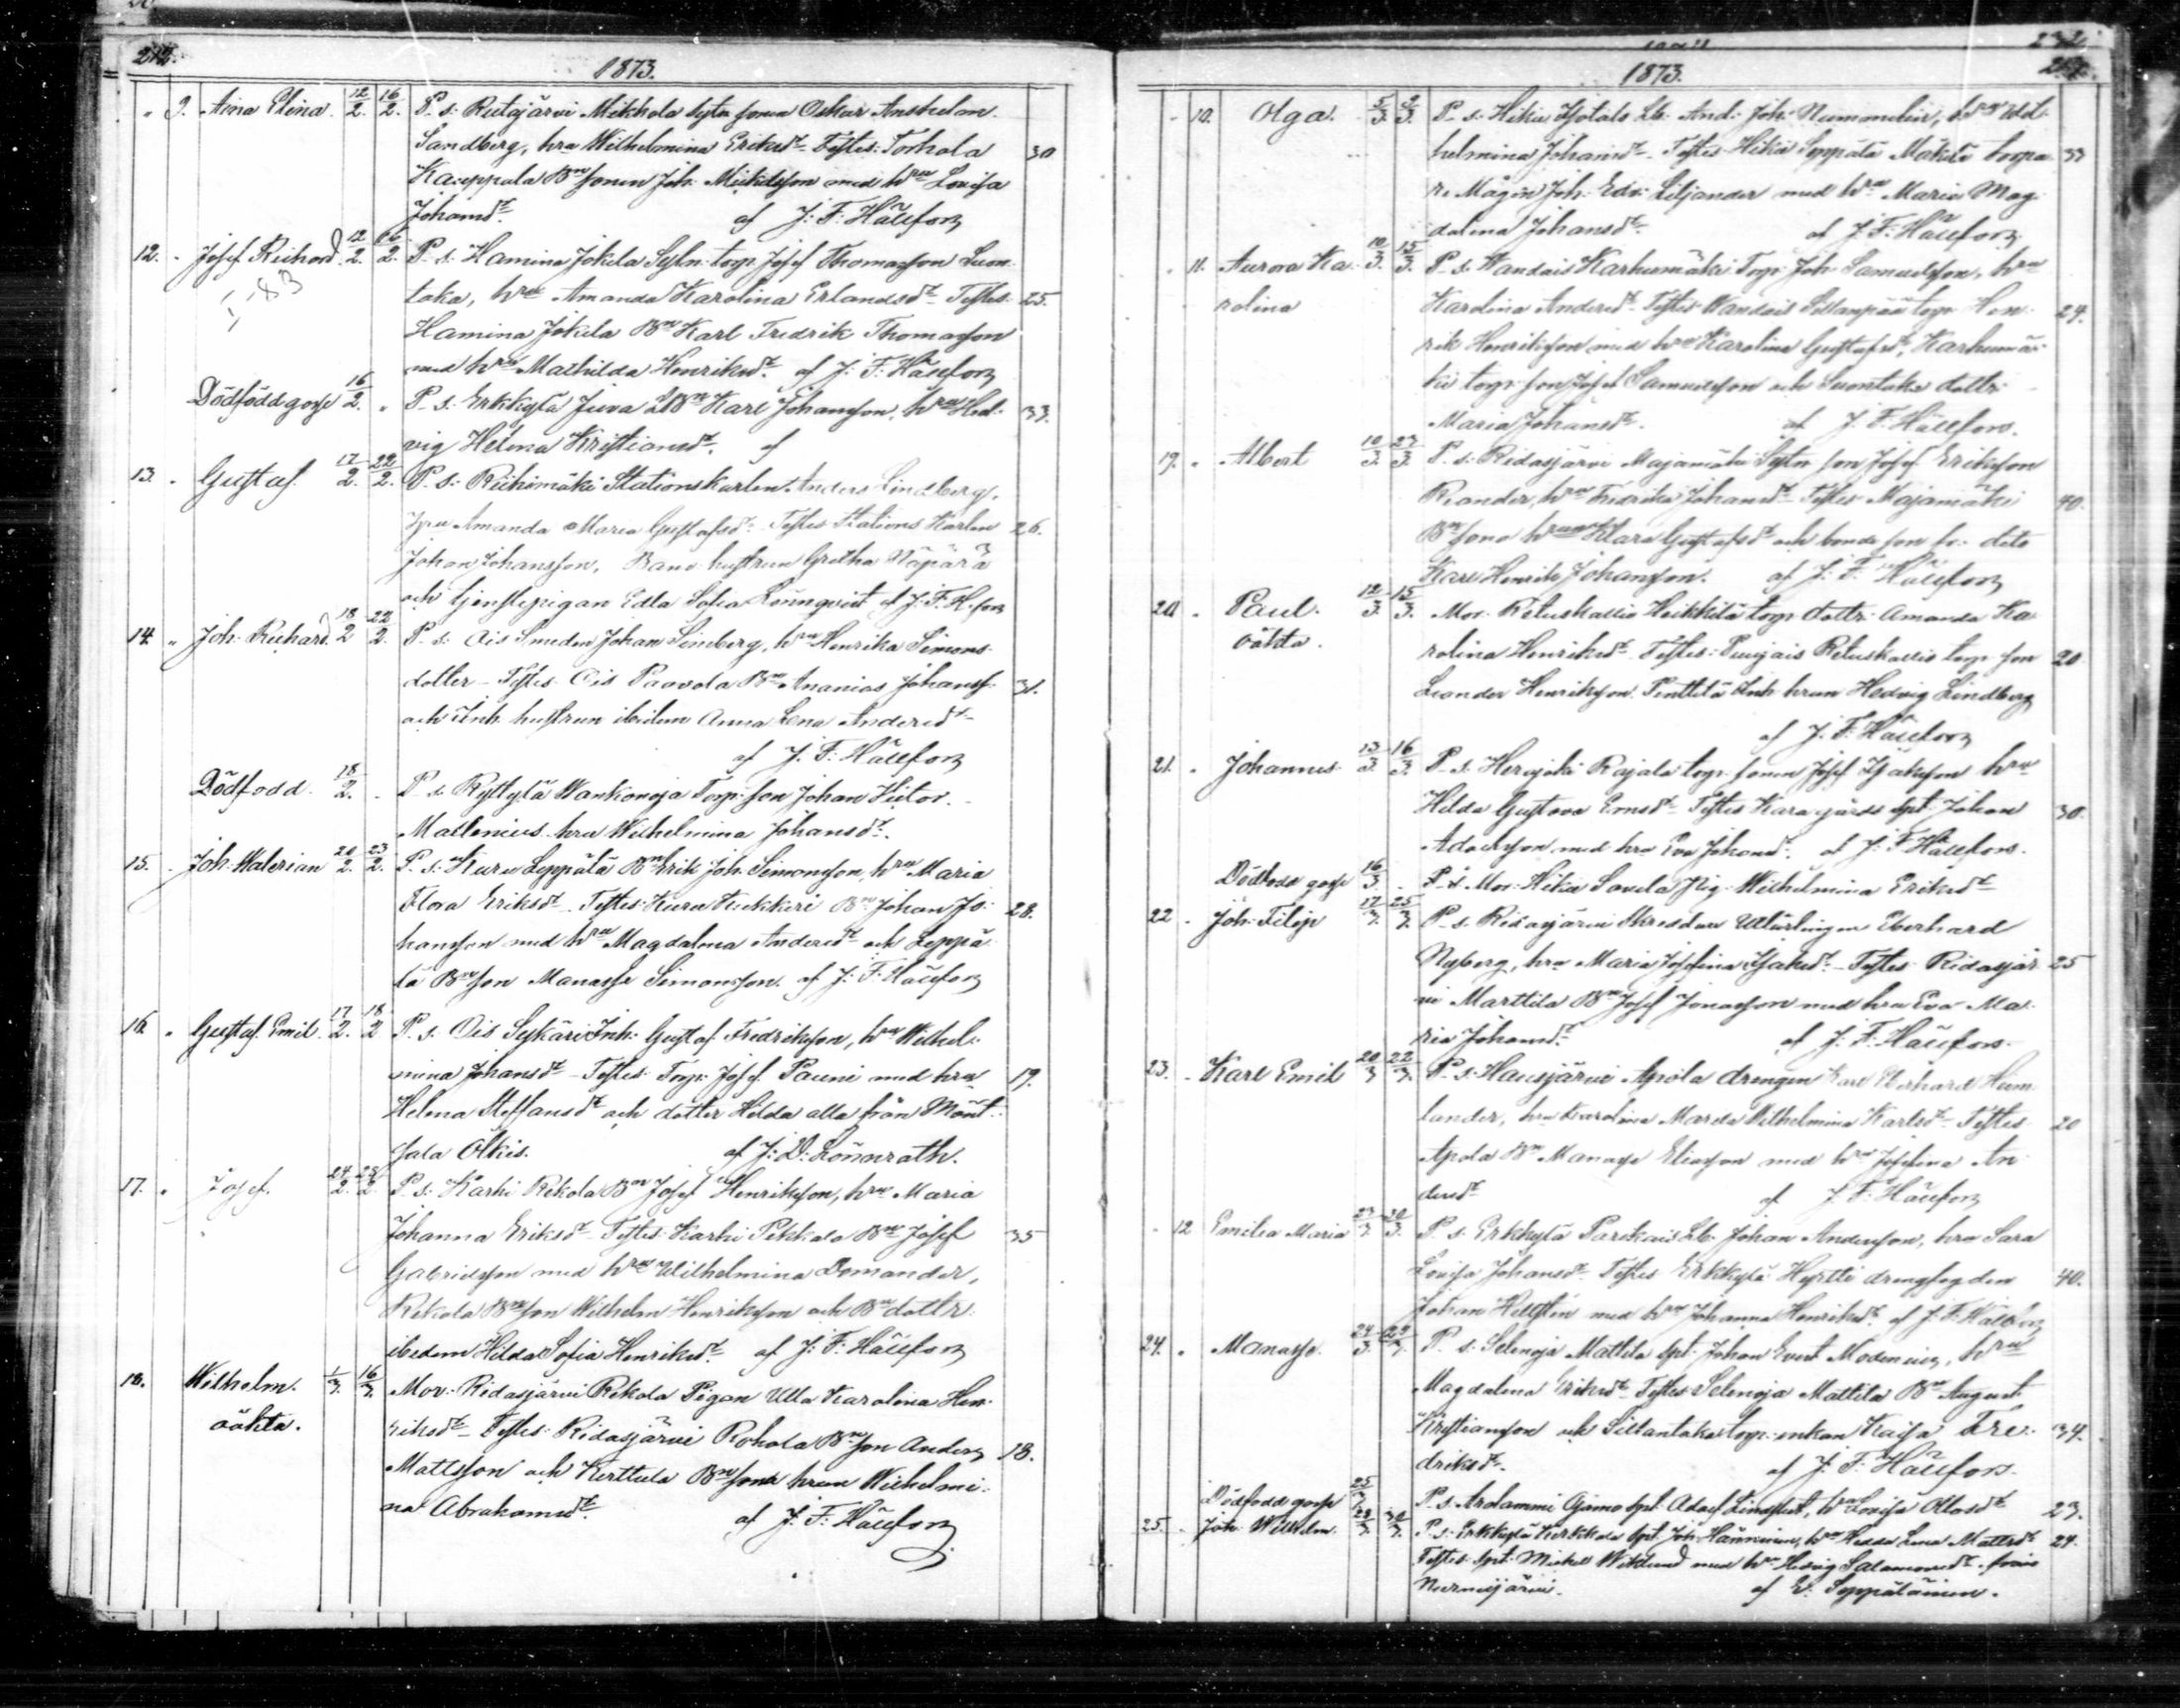 212.
1873.
" 9. Aina Elina. 12/2. 16/2. P. s. Ridasjärvi Mikkola sytn. sonen Oskar Anshelm
Sandberg, hru Wilhelmina Eriksdr. Testes: Torhola 30
Kauppala Bdn sonen Joh. Mickelsson med hru Lovisa
Johansdr. af J: F: Hällfors
12. " Josef Richard 12/2. 16/2. P. s. Hamina Jokela Sytn. torp. Josef Thomasson Luon-
taka, hru Amanda Karolina Erlandsdr. Testes 25.
Hamina Jokela Bdn Karl Fredrik Thomasson
med hru Mathilda Henriksdr. af J: F: Hällfors
Dödfödd gosse 16/2. " P. s. Erkkylä Juva Bdn Karl Johansson, hru Hed- 33.
vig Helena Kristiansdr. af
13. " Gustaf. 17/2. 22/2. P. s. Riihimäki Stationskarlen Anders Lindberg,
hru Amanda Maria Gustafsdr. Testes Stations Karlen 26.
Johan Johansson, Banv. hustrun Gretha Näpärä
och tjenstepigan Edla Sofia Lönnqvist af J: F. H-fors
14. " Joh. Richard. 18/2 22/2. P. s. Ois Smeden Johan Lineberg, hru Henrika Simons-
dotter Testes Ois Paavola Bdn Ananias Johanss. 31.
och Inh. hustrun ibidem Anna Lena Andersdr.
af J. F: Hällfors
Dödfödd. 18/2. - P. s. Ryttylä Wankonoja Torp. son Johan Victor
Mallenius hru Wilhelmina Johansdr.
15. . Joh. Walerian 20/2. 23/2. P. s. Kuru Leppälä Bdn Erik Joh. Simonsson, hru Maria
Flora Eriksdr. Testes: Kuru Kukkari Bdn Johan Jo- 28.
hansson med hru Magdalena Andersdr. och Leppä-
lä Bdn son Manasse Simonsson. af J: F: Hällfors
16. " Gustaf Emil. 17/2. 18/2 P. s. Ois Sykäri Inh: Gustaf Fredriksson, hru Wilhel-
mina Johansdr. Testes: Torp. Josef Pauni med hru 19.
Helena Steffansdr. och dotter Hilda alla från Mänt-
sälä Olkis. af J: D: Lönnroth.
17. " Josef. 24/2. 28/2 P. s. Karhi Rekola Bdn Josef Henriksson, hru Maria
Johanna Eriksdr. Testes: Karhi Pekkala Bdn Josef 35
Gabrielsson med hru Wilhelmina Domander,
Rekola Bdn son Wilhelm Henriksson och Bdn dottr.
ibidem Hilda Sofia Henriksdr. af J: F: Hällfors
18. Wilhelm. 1/3. 16/3. Mor: Ridasjärvi Rekola Pigan Ulla Karolina Hen-
oäkta. riksdr. Testes: Ridasjärvi Rekola Bdn son Anders 18.
Mattsson och Kerttula Bdn sons hrun Wilhelmi-
na Abrahamsdr. af J. F: Hällfors

232
1873.
" 10. Olga. 5/3. 9/3. P. s. Hikiä Isotalo Lb. And. Joh. Nummelin, hru Wil-
helmina Johansdr. Testes Hikiä Seppälä Mäkilä torpa- 33
re Mågen Joh. Edv. Liljander med hru Maria Mag-
dalena Johansdr. af J. F: Hällfors
" 11. Aurora Ka- 10/3. 15/3. P. s. Wandais Karhumäki Torp. Joh. Samuelsson, hru
rolina Karolina Andersdr. Testes Wandais Sillanpää torp. Hen- 24.
rik Henriksson med hru Karolina Gustafsdr, Karhumä-
ki torp. son Josef Samuelsson och Luontaka dottr.
Maria Johansdr. af J. F: Hällfors.
19. " Albert 10/3. 23/3. P. s. Ridasjärvi Majamäki Sytn. son Josef Eriksson
Reander, hru Fredrika Johansdr. Testes Majamäki 40.
Bdn sons hrun Klara Gustafsdr. och bonde son fr. dito
Karl Henrik Johansson. af J. F. Hällfors
20. " Paul. 12/3. 15/3. Mor. Retuskallio Heikkilä torp. dottr. Amanda Ka-
oäkta. rolina Henriksdr. Testes: Puujais Retuskallio torp. son 20
Leander Henriksson. Penttilä Inh. hrun Hedvig Lindberg
af J. F. Hällfors
21. " Johannes. 13/3. 16/3. P. s. Herajoki Rajala torp. sonen Josef Isaksson hru
Hilda Gustava Ernsdr. Testes Kara gårds spt. Johan 30.
Adamsson med hru Eva Johansdr. af J. F. Hällfors.
Dödfödd gosse 16/3. - P. s. Mor: Hikiä Savela Pig. Wilhelmina Eriksdr.
22. Joh. Filip 17/3. 25/3. P. s. Ridasjärvi Skreddare Utlärlingen Eberhard
Nyberg, hru Maria Josefina Isaksdr. Testes Ridasjär- 25
vi Marttila Bdn Josef Jonasson med hru Eva Ma-
ria Johansdr. af J. F. Hällfors.
23. " Karl Emil 20/3 22/3. P. s. Hausjärvi Apola drengen Karl Eberhard Heim-
lander, hru Karolina Maria Wilhelmina Karlsdr. Testes 20
Apola Bdn Manasse Eliasson med hru Josefina An-
dersdr. af J. F. Hällfors
" 12 Emilia Maria 23/3. 30/3. P. s. Erkkylä Parikais Lb. Johan Andersson, hru Sara
Lovisa Johansdr. Testes Erkkylä Hyrtti drengfogden 40.
Johan Hellsten med hru Johanna Henriksdr. af J. F. Hällfors
24. " Manasse. 24/3. 29/3. P. s. Selenoja Mattila spt. Johan Evert Modenius, hru
Magdalena Eriksdr. Testes Selenoja Mattila Bdn August
Kristiansson och Sillantaka torp. enkan Kaisa Fre- 34.
driksdr. af J. F: Hällfors.
Dödfödd gosse 25/3. P. s. Arolammi Ojamo spt. Adolf Lindqvist, hru Lovisa Ottosdr. 23.
25. Joh. Wilhelm. 28/3. 30/3. P. s. Erkkylä Kirkkola spt. Joh. Hänninen, hru Hedda Lena Mattsdr. 24.
Testes spt. Mickel Wiklund med hru Hedvig Salomonsdr. från
Nurmijärvi. af E: Seppäläinen.